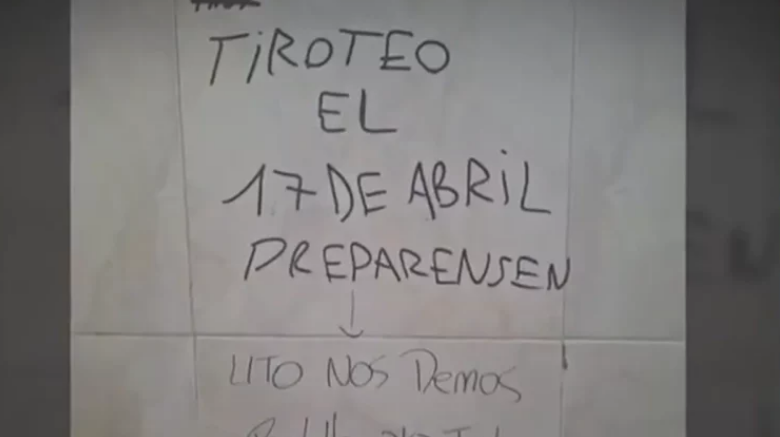 TIROTEO
EL
17 DE ABRIL
PREPARENSEN
LITO NOS DEMOS